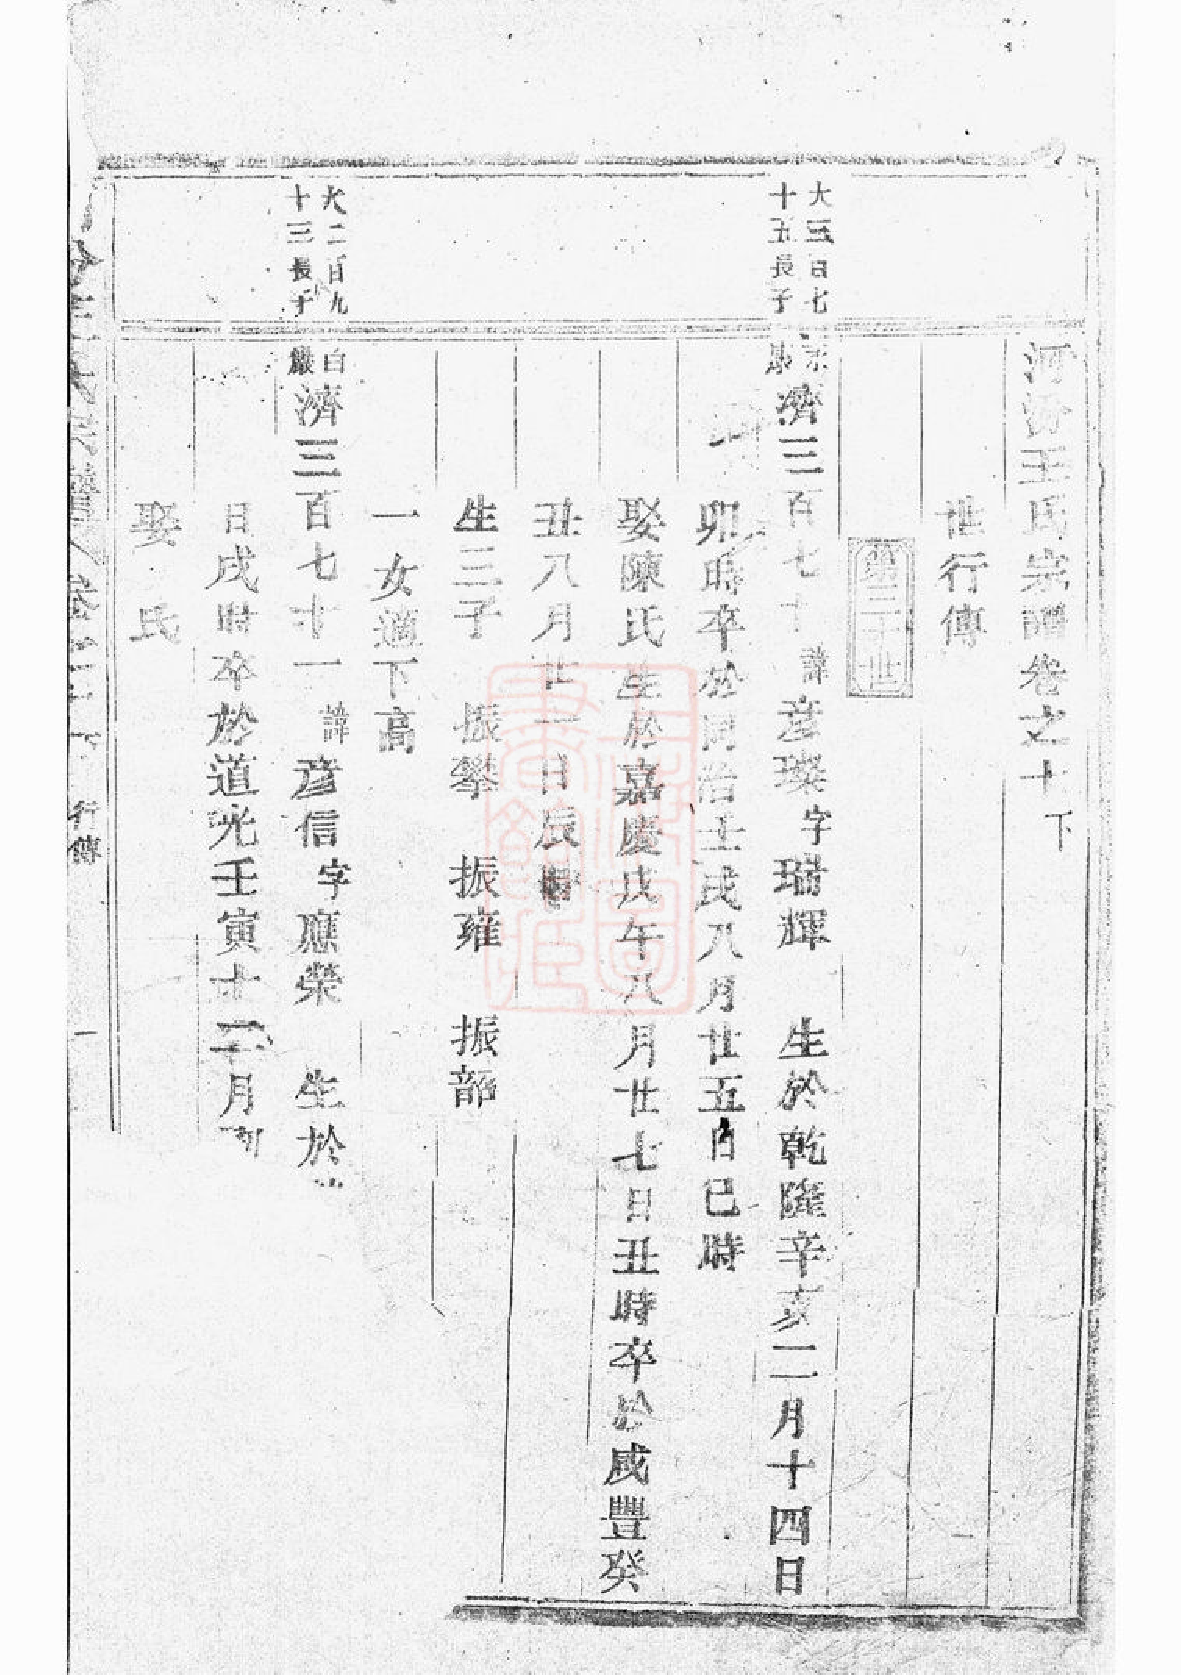 河汾王氏宗譜卷之十下
世行傳
第三十世
大三百七
十五長子
濟三百七十諱彦璨字瑞輝 生於乾隆辛亥二月十四日
卯時卒於同治壬戌八月廿五日巳時
娶陳氏生於嘉慶戊午八月廿七日丑時卒於咸豐癸
丑八月廿一日辰時
生三子 振攀 振雍 振韶
一女適下高
大二百九
十三長子
白
巖
濟三百七十一諱彦信字應榮 生於
日戌時卒於道光壬寅十二月
娶 氏
行傳
一